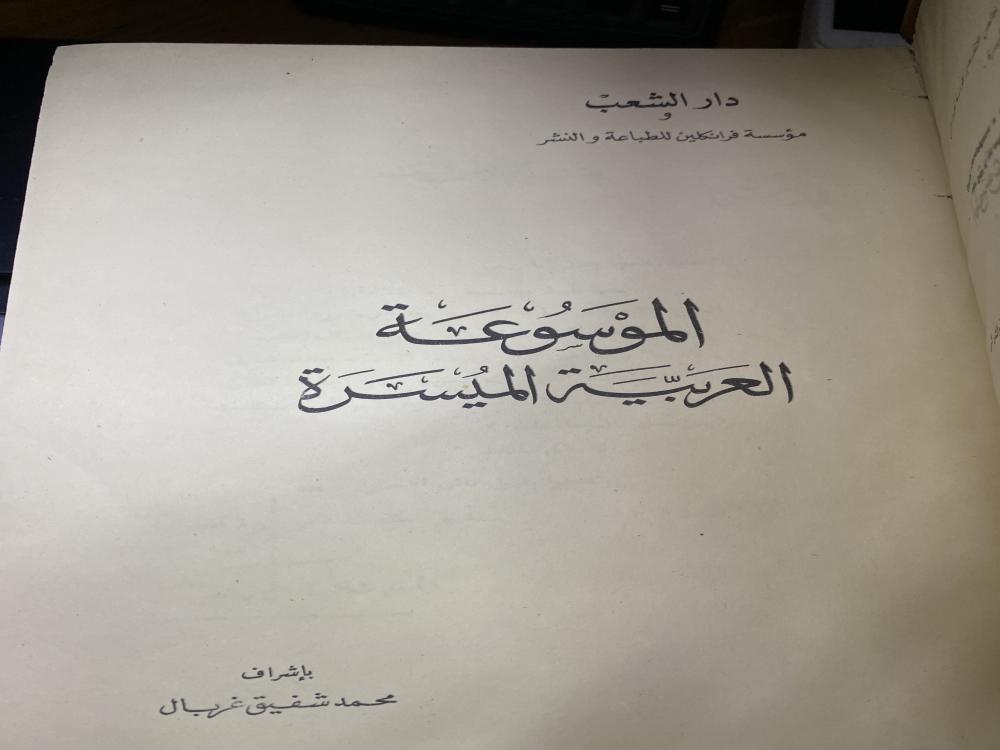 دار الشعب
و
مؤسسة فرانكلين للطباعة والنشر
الموْسَوُعَة
العَربيَّة الميُسَرَة
بإشراف
محمد شفيق غربال